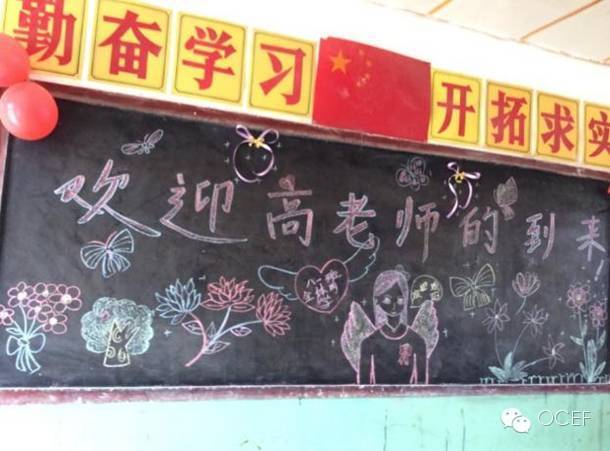 勤奋学习 开拓求实
欢迎高老师的到来
OCEF